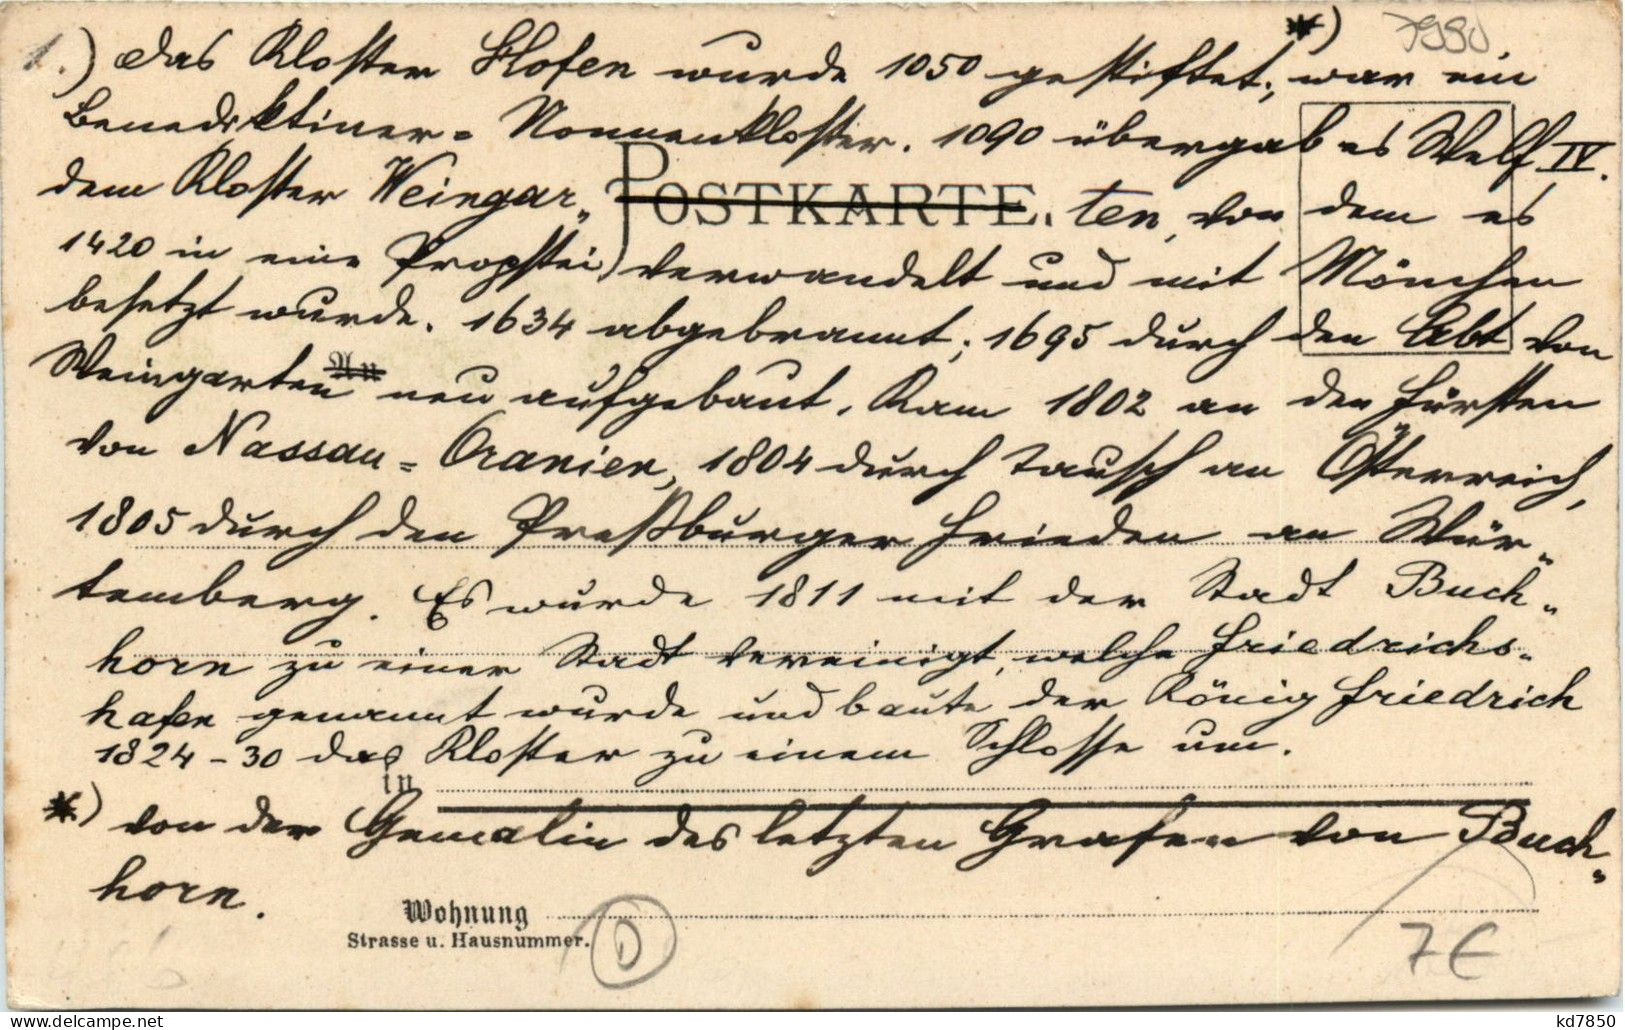 1.) Das Kloster Hofen wurde 1050 gestiftet, *) war ein
7990
Benediktiner= Nonnenkloster. 1090 übergab es Welf IV.
dem Kloster Weingar„ POSTKARTE. ten, von dem es
1420 in eine Propstei verwandelt und mit Mönchen
besetzt wurde. 1634 abgebrannt; 1695 durch den Abt von
Weingarten An neu aufgebaut. Kam 1802 an den Fürsten
von Nassau=Oranien, 1804 durch Tausch an Österreich,
1805 durch den Preßburger Frieden an Wür„
temberg. Es wurde 1811 mit der Stadt Buch„
horn zu einer Stadt vereinigt, welche Friedrichs=
hafen genannt wurde und baute der König Friedrich
1824-30 das Kloster zu einem Schlosse um.
in
*) von der Gemalin des letzten Grafen von Buch„
horn.
Wohnung
Strasse u. Hausnummer.
D
7€
kd7850